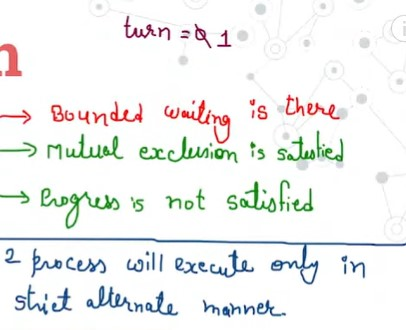 turn = 0 1
n
→ Bounded waiting is there
→ Mutual exclusion is satisfied
→ Progress is not satisfied
2 process will execute only in
strict alternate manner.